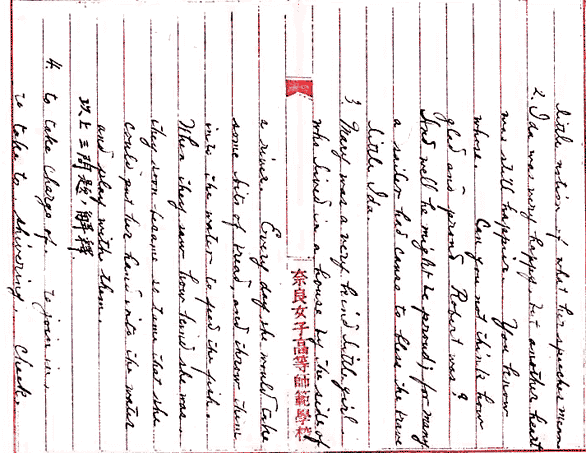 little notion of what his speeches mean
2. Ida was very happy but another heart
was still happier. You know
whose. Can you not think how
glad and proud Robert was?
And well he might be proud; for many
a sailor had cause to bless the brave
little Ida.
3. Mary was a very kind little girl
who lived in a house by the side of
奈良女子高等師範學校
a river. Every day she would take
some bits of bread, and throw them
into the water to feed the fish.
When they saw how kind she was
they soon became so tame that she
could put her hand into the water
and play with them.
以上三問題ノ解釋
4. to take charge of. to join in.
to take to shivering. Check.